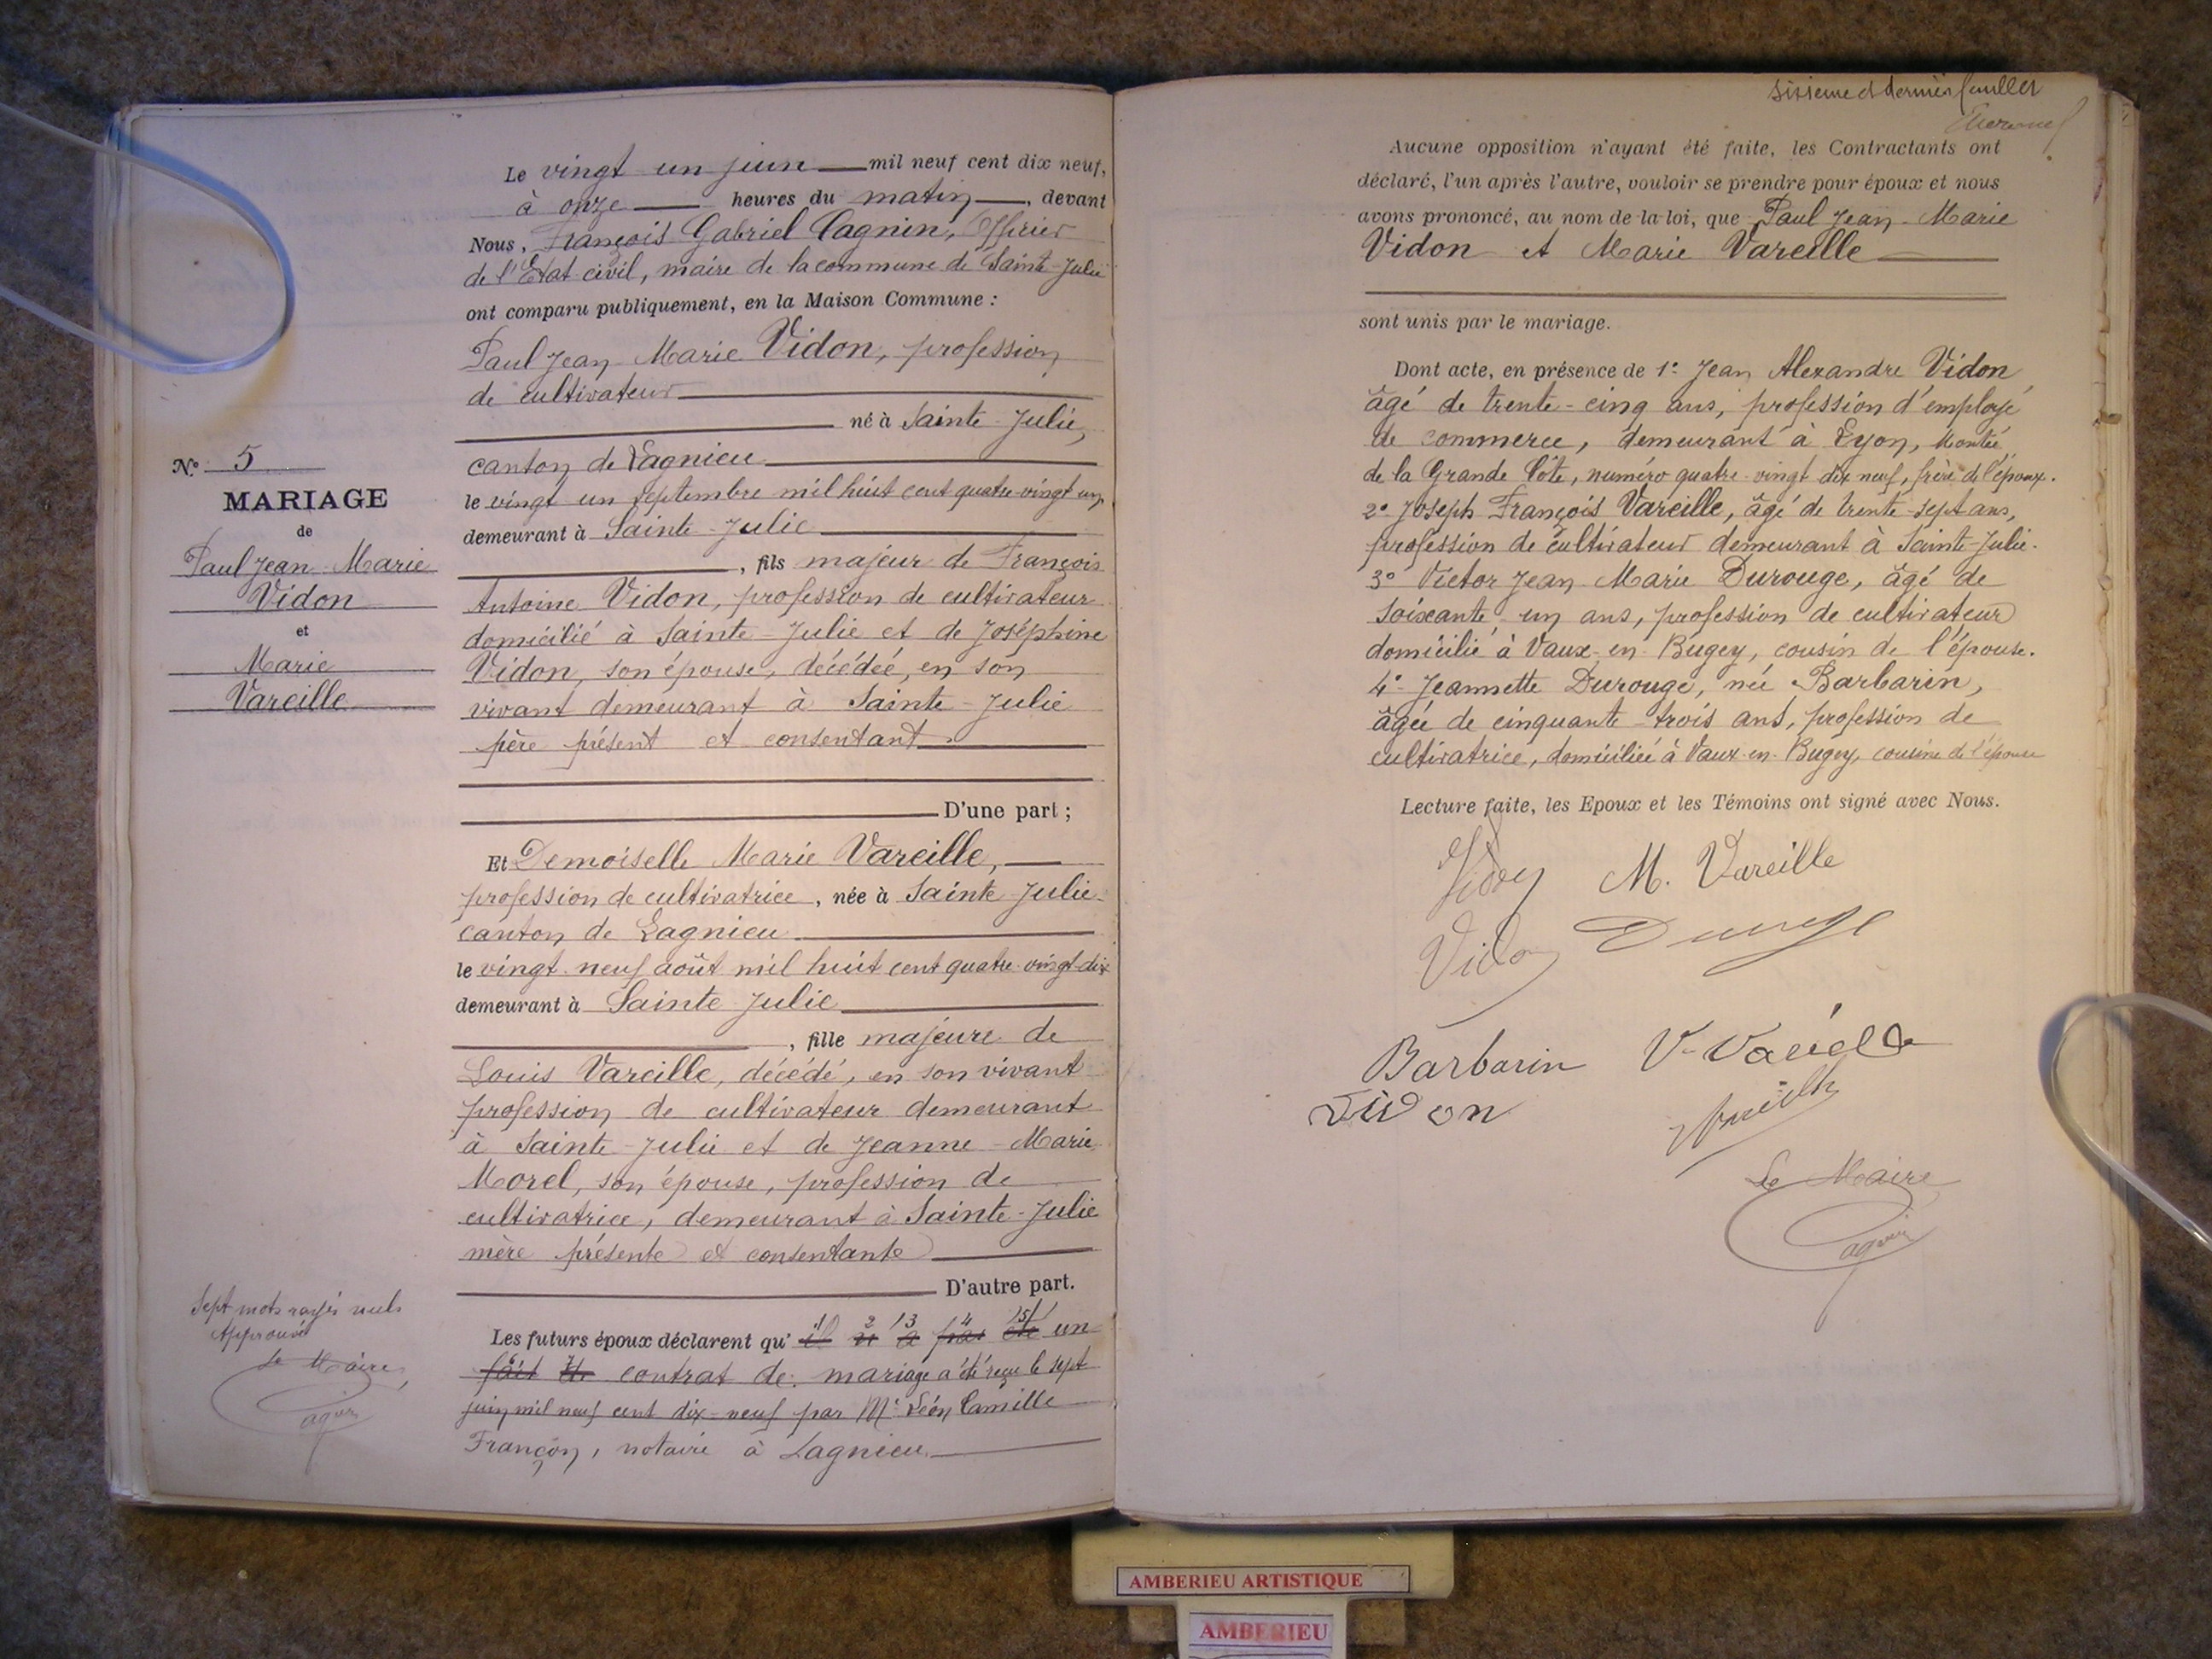 Le vingt un juin mil neuf cent dix neuf,
à onze heures du matin, devant
Nous, François Gabriel Cagnin, Officier
de l'Etat civil, maire de la commune de Sainte-Julie
ont comparu publiquement, en la Maison Commune :
Paul Jean Marie Vidon, profession
de cultivateur
né à Sainte-Julie,
canton de Lagnieu
le vingt un septembre mil huit cent quatre-vingt un,
demeurant à Sainte-Julie
, fils majeur de François
Antoine Vidon, profession de cultivateur
domicilié à Sainte-Julie et de Joséphine
Vidon, son épouse, décédée, en son
vivant demeurant à Sainte-Julie
père présent et consentant
D'une part ;
Et Demoiselle Marie Vareille,
profession de cultivatrice, née à Sainte-Julie
canton de Lagnieu
le vingt neuf août mil huit cent quatre-vingt-dix
demeurant à Sainte-Julie
, fille majeure de
Louis Vareille, décédé, en son vivant
profession de cultivateur demeurant
à Sainte-Julie et de Jeanne-Marie
Morel, son épouse, profession de
cultivatrice, demeurant à Sainte-Julie
mère présente et consentante
D'autre part.
Les futurs époux déclarent qu' il n' a pas été un
fait de contrat de mariage a été reçu le sept
juin mil neuf cent dix-neuf par Me Léon Camille
Françon, notaire à Lagnieu.
N° 5
MARIAGE
de
Paul Jean-Marie
Vidon
et
Marie
Vareille
Sept mots rayés nuls
Approuvé
Le Maire,
Cagnin
sixième et dernier feuillet
Aucune opposition n'ayant été faite, les Contractants ont
déclaré, l'un après l'autre, vouloir se prendre pour époux et nous
avons prononcé, au nom de la loi, que Paul Jean-Marie
Vidon et Marie Vareille
sont unis par le mariage.
Dont acte, en présence de 1° Jean Alexandre Vidon
âgé de trente-cinq ans, profession d'employé
de commerce, demeurant à Lyon, Montée
de la Grande Côte, numéro quatre-vingt dix neuf, frère de l'époux.
2° Joseph François Vareille, âgé de trente-sept ans,
profession de cultivateur demeurant à Sainte-Julie.
3° Victor Jean-Marie Durouge, âgé de
soixante-un ans, profession de cultivateur
domicilié à Vaux-en-Bugey, cousin de l'épouse.
4° Jeannette Durouge, née Barbarin,
âgée de cinquante-trois ans, profession de
cultivatrice, domiciliée à Vaux-en-Bugey, cousine de l'épouse
Lecture faite, les Epoux et les Témoins ont signé avec Nous.
Vidon M. Vareille
Vidon Durouge
Barbarin V. Vareille
Vidon
Le Maire
Cagnin
AMBERIEU ARTISTIQUE
AMBERIEU